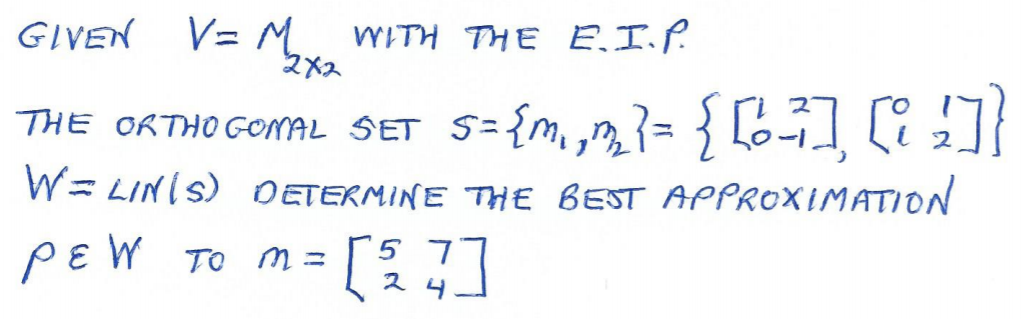 GIVEN V= M2x2 WITH THE E.I.P.
THE ORTHOGONAL SET S={m1,m2}= {[1 2 0 -1], [0 1 1 2]}
W= LIN(S) DETERMINE THE BEST APPROXIMATION
p ε W TO m = [5 7 2 4]